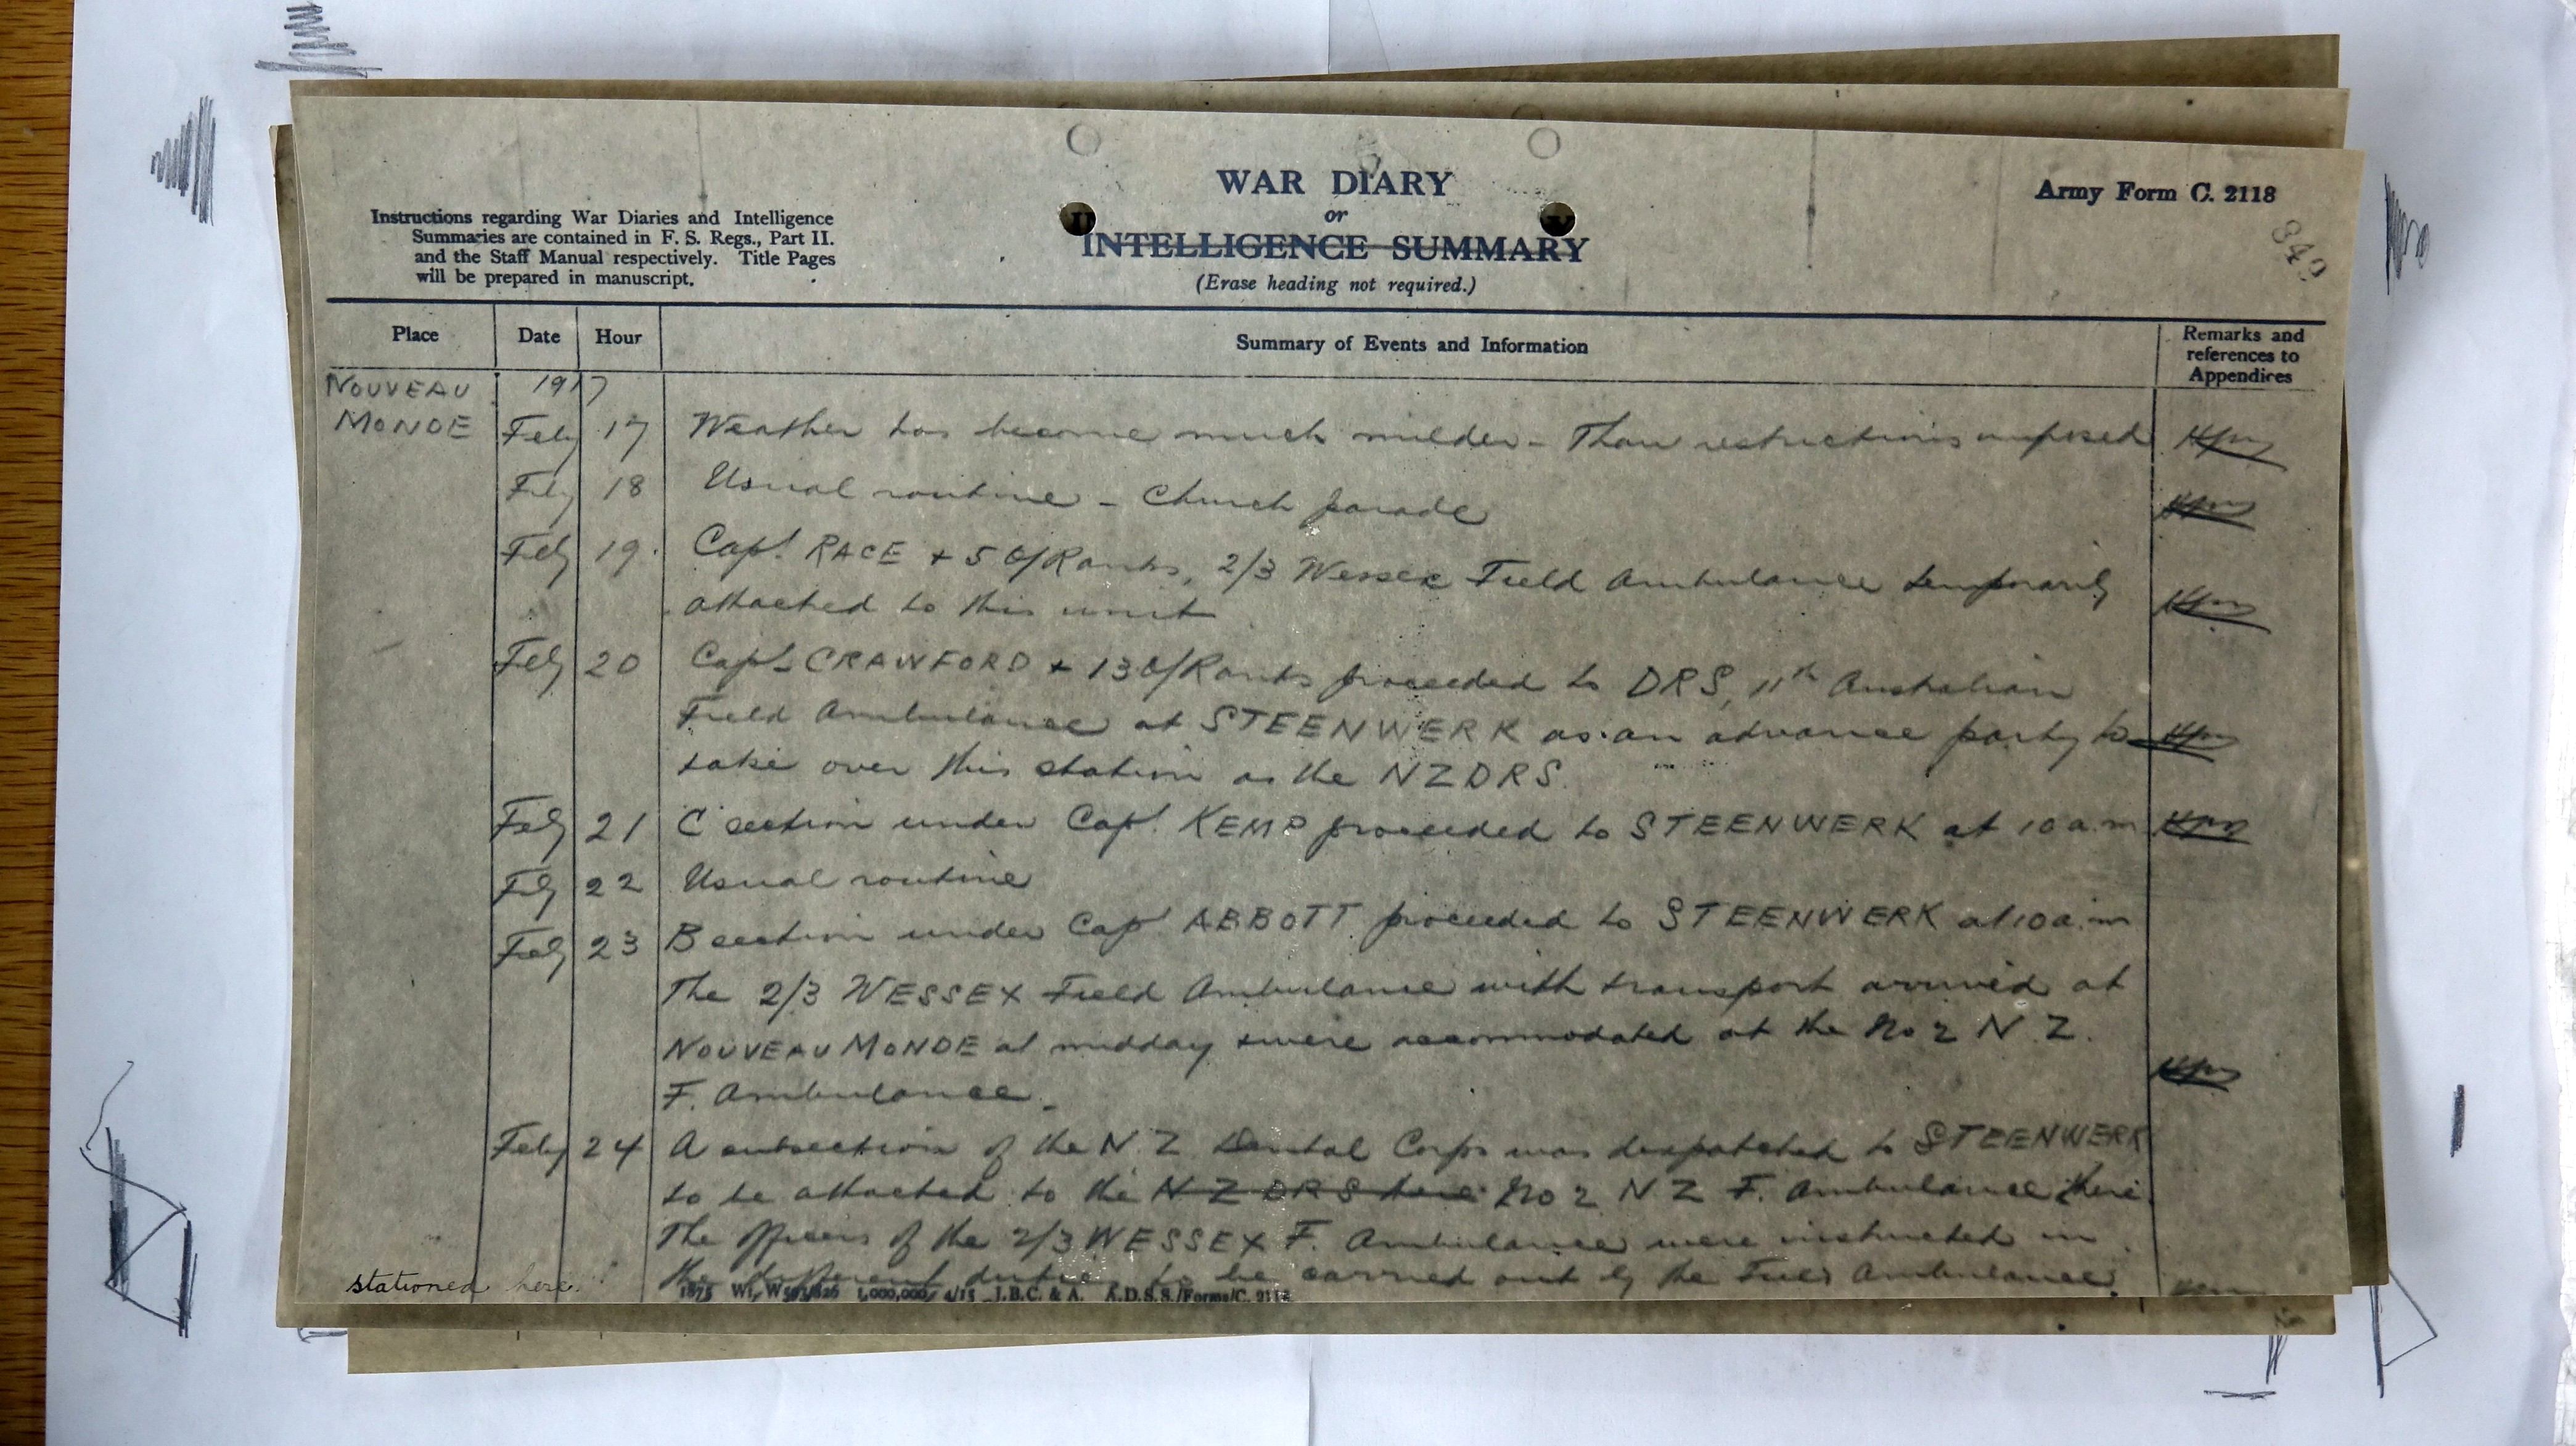 WAR DIARY
or
INTELLIGENCE SUMMARY
(Erase heading not required.)
Army Form C. 2118
849
Instructions regarding War Diaries and Intelligence
Summaries are contained in F. S. Regs., Part II.
and the Staff Manual respectively. Title Pages
will be prepared in manuscript.
Place Date Hour Summary of Events and Information Remarks and references to Appendices
NOUVEAU 1917
MONDE Feby 17 Weather has become much milder - Thaw restrictions imposed
Feby 18 Usual routine - Church parade
Feby 19. Capt. RACE + 5 O/Ranks, 2/3 Wessex Field Ambulance temporarily
attached to this unit
Feby 20 Capt. CRAWFORD + 13 O/Ranks proceeded to DRS, 11th Australian
Field Ambulance at STEENWERK as an advance party to
take over this station as the NZDRS.
Feby 21 C section under Capt. KEMP proceeded to STEENWERK at 10 a.m
Feby 22 Usual routine
Feby 23 B section under Capt ABBOTT proceeded to STEENWERK at 10 a.m
The 2/3 WESSEX Field Ambulance with transport arrived at
NOUVEAU MONDE at midday + were accommodated at the No 2 N. Z.
F. Ambulance.
Feby 24 A subsection of the N. Z. Dental Corps was despatched to STEENWERK
to be attached to the N Z DRS here No 2 N Z F. Ambulance there.
The officers of the 2/3 WESSEX F. Ambulance were instructed in
the different duties to be carried out by the Field Ambulance
stationed here.
1875 Wt. W593/826 1,000,000 4/15 J.B.C. & A. A.D.S.S./Forms/C. 2118